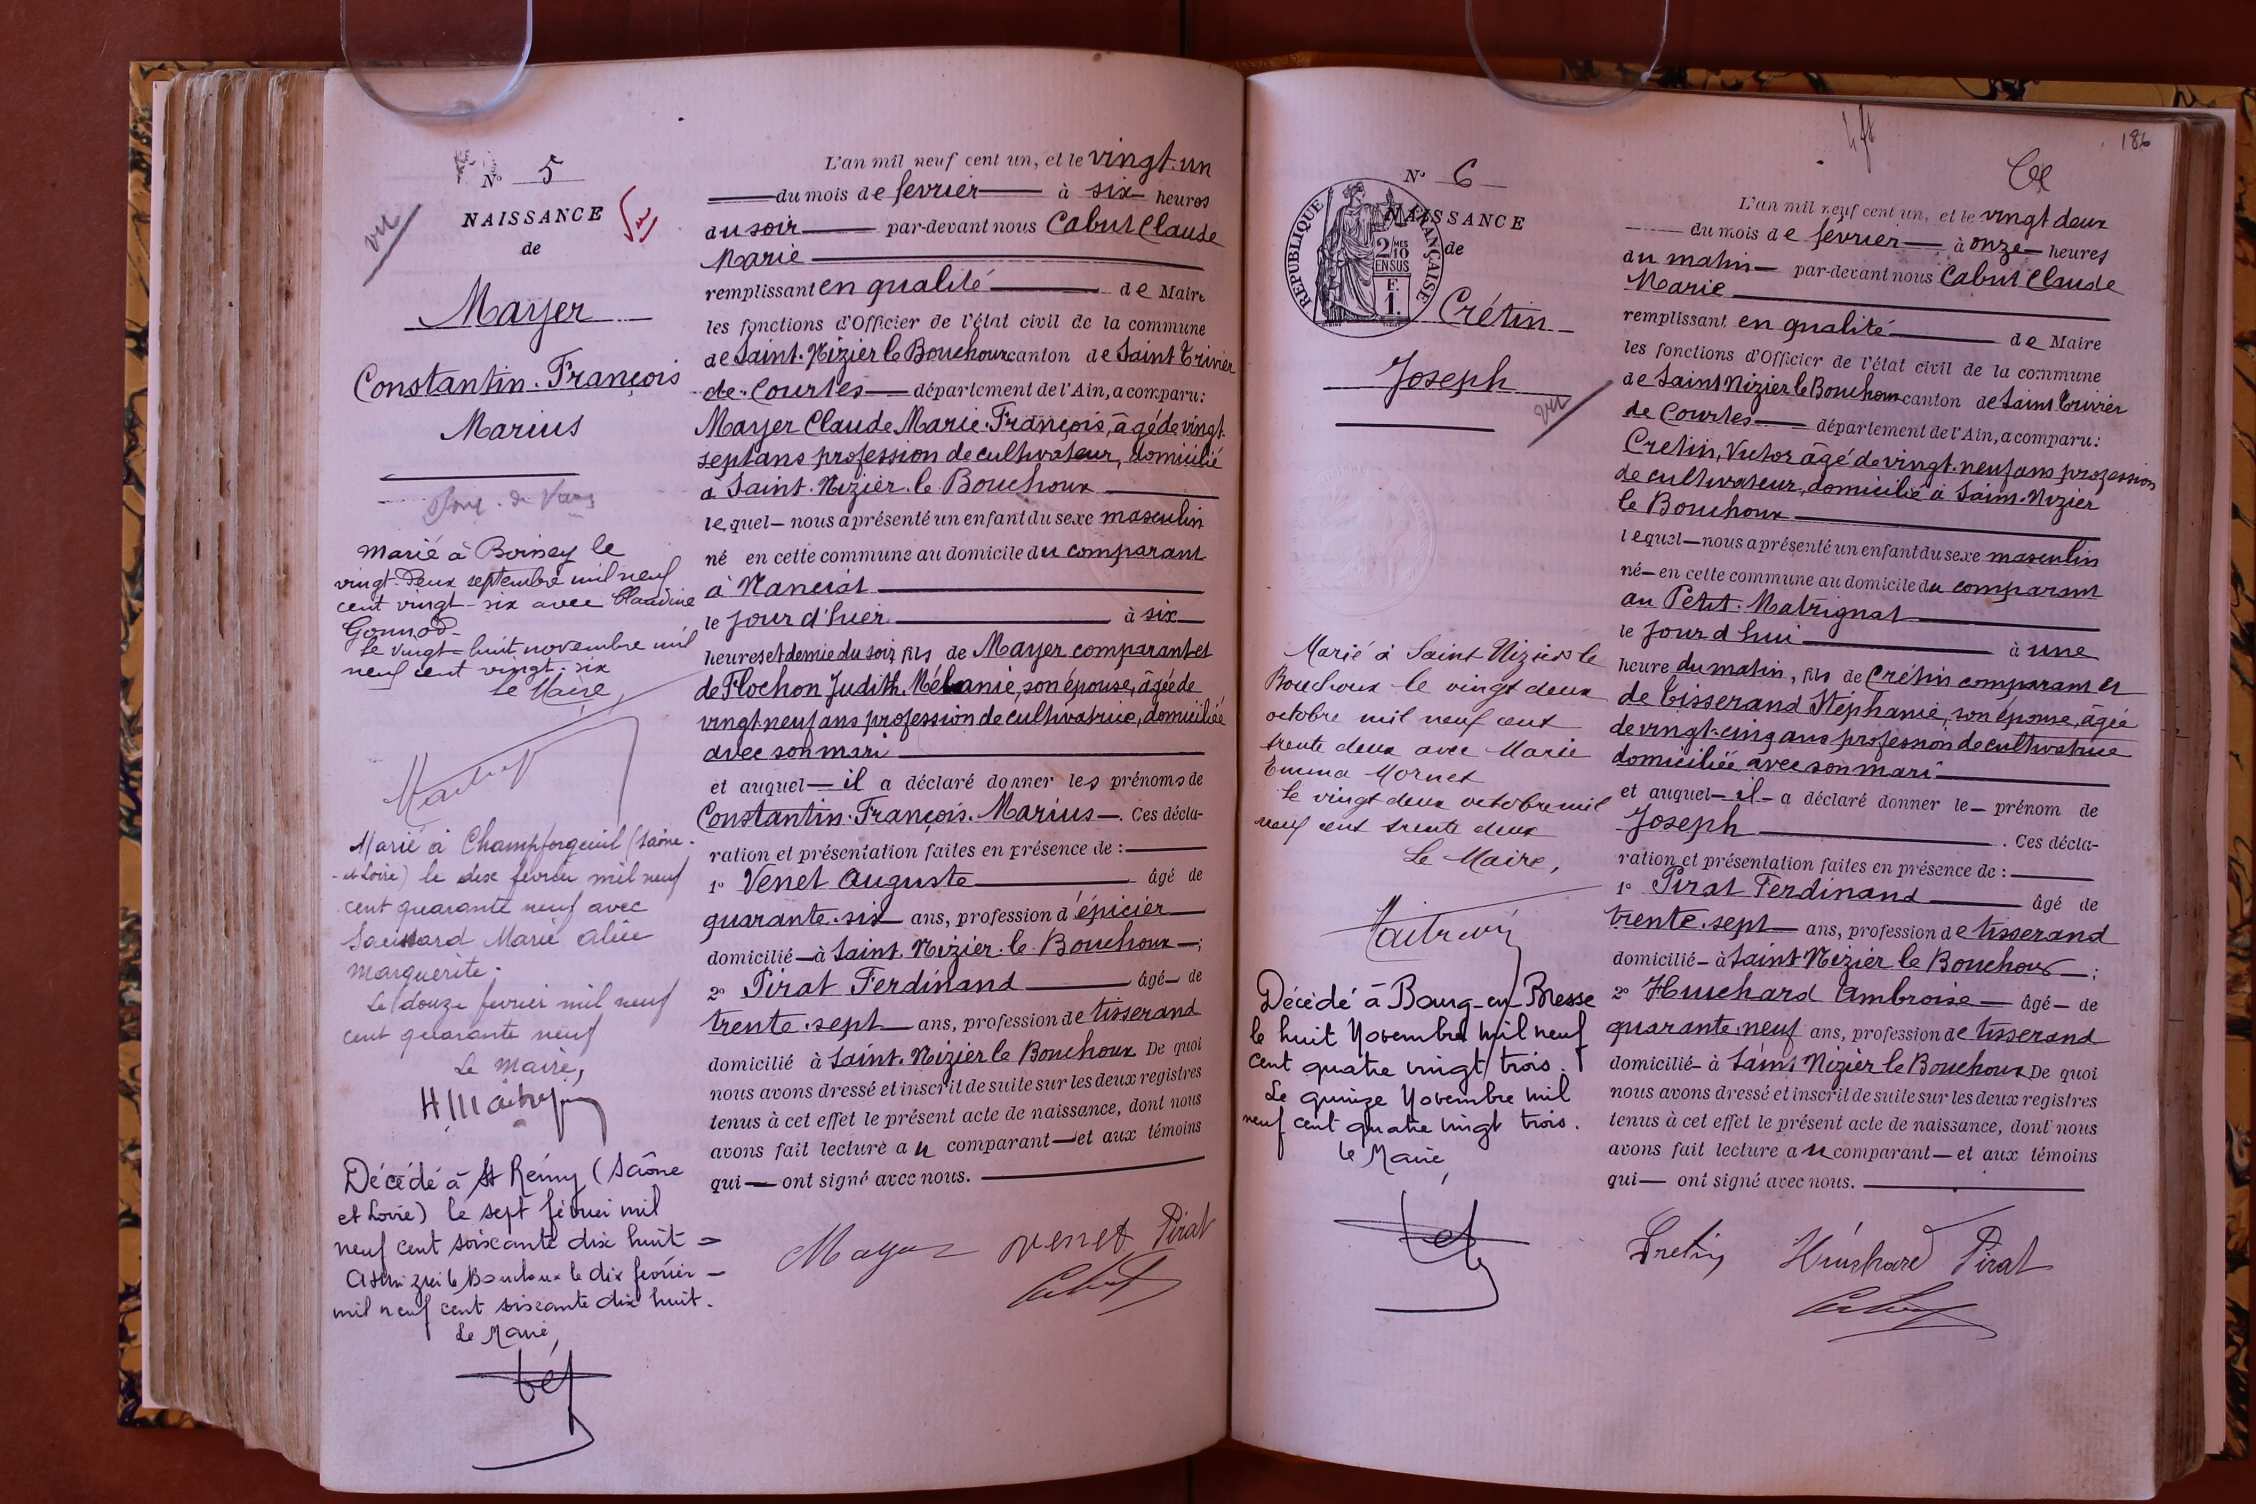 N° 5
NAISSANCE
de
Mayer
Constantin-François
Marius
vu
marié à Boissey le
vingt-deux septembre mil neuf
cent vingt-six avec Claudine
Gonnod-
Le vingt-huit novembre mil
neuf cent vingt-six
Le Maire,
Marié à Champforgeuil (Saône-
-et-Loire) le dix février mil neuf
cent quarante neuf avec
Marie Alice
Marguerite.
Le douze février mil neuf
cent quarante neuf
Le Maire,
Décédé à St Rémy (Saône
et Loire) le sept février mil
neuf cent soixante dix huit =
le dix février -
mil neuf cent soixante dix huit.
Le Maire,
L'an mil neuf cent un, et le vingt-un
du mois de fevrier à six heures
du soir par-devant nous Cabut Claude
Marie
remplissant en qualité de Maire
les fonctions d'Officier de l'état civil de la commune
de Saint-Nizier le Bouchoux canton de Saint Trivier
de-Courtes département de l'Ain, a comparu:
Mayer Claude Marie-François, âgé de vingt-
sept ans profession de cultivateur, domicilié
à Saint-Nizier-le Bouchoux
lequel nous a présenté un enfant du sexe masculin
né en cette commune au domicile du comparant
à Manciat
le jour d'hier à six
heures et demie du soir, fils de Mayer comparant et
de Flochon Judith-Mélanie, son épouse, âgée de
vingt-neuf ans profession de cultivatrice, domiciliée
avec son mari
et auquel il a déclaré donner les prénoms de
Constantin-François-Marius. Ces décla-
ration et présentation faites en présence de :
1° Venet Auguste âgé de
quarante-six ans, profession d'épicier
domicilié à Saint-Nizier-le-Bouchoux ;
2° Pirat Ferdinand âgé de
trente-sept ans, profession de tisserand
domicilié à Saint-Nizier le Bouchoux De quoi
nous avons dressé et inscrit de suite sur les deux registres
tenus à cet effet le présent acte de naissance, dont nous
avons fait lecture au comparant et aux témoins
qui ont signé avec nous.
Mayer Venet Pirat
Cabut
186
N° 6
NAISSANCE
de
RÉPUBLIQUE FRANÇAISE
2/10 MES
EN SUS
F.
1.
Crétin
Joseph
vu
Marié à Saint Nizier le
Bouchoux le vingt deux
octobre mil neuf cent
trente deux avec Marie
Emma Mornet
Le vingt deux octobre mil
neuf cent trente deux
Le Maire,
Décédé à Bourg-en-Bresse
le huit Novembre mil neuf
cent quatre vingt trois.
Le quinze Novembre mil
neuf cent quatre vingt trois.
Le Maire,
L'an mil neuf cent un, et le vingt deux
du mois de février à onze heures
du matin par-devant nous Cabut Claude
Marie
remplissant en qualité de Maire
les fonctions d'Officier de l'état civil de la commune
de Saint Nizier le Bouchoux canton de Saint Trivier
de Courtes département de l'Ain, a comparu:
Cretin, Victor âgé de vingt-neuf ans profession
de cultivateur, domicilié à Saint-Nizier
le Bouchoux
lequel nous a présenté un enfant du sexe masculin
né en cette commune au domicile du comparant
au Petit-Matrignat
le jour d'hui à une
heure du matin, fils de Crétin comparant et
de Tisserand Stéphanie, son épouse, âgée
de vingt-cinq ans profession de cultivatrice
domiciliée avec son mari
et auquel il a déclaré donner le prénom de
Joseph. Ces décla-
ration et présentation faites en présence de :
1° Pirat Ferdinand âgé de
trente-sept ans, profession de tisserand
domicilié à Saint Nizier le Bouchoux ;
2° Huchard Ambroise âgé de
quarante-neuf ans, profession de tisserand
domicilié à Saint Nizier le Bouchoux De quoi
nous avons dressé et inscrit de suite sur les deux registres
tenus à cet effet le présent acte de naissance, dont nous
avons fait lecture au comparant et aux témoins
qui ont signé avec nous.
Cretin Huchard Pirat
Cabut